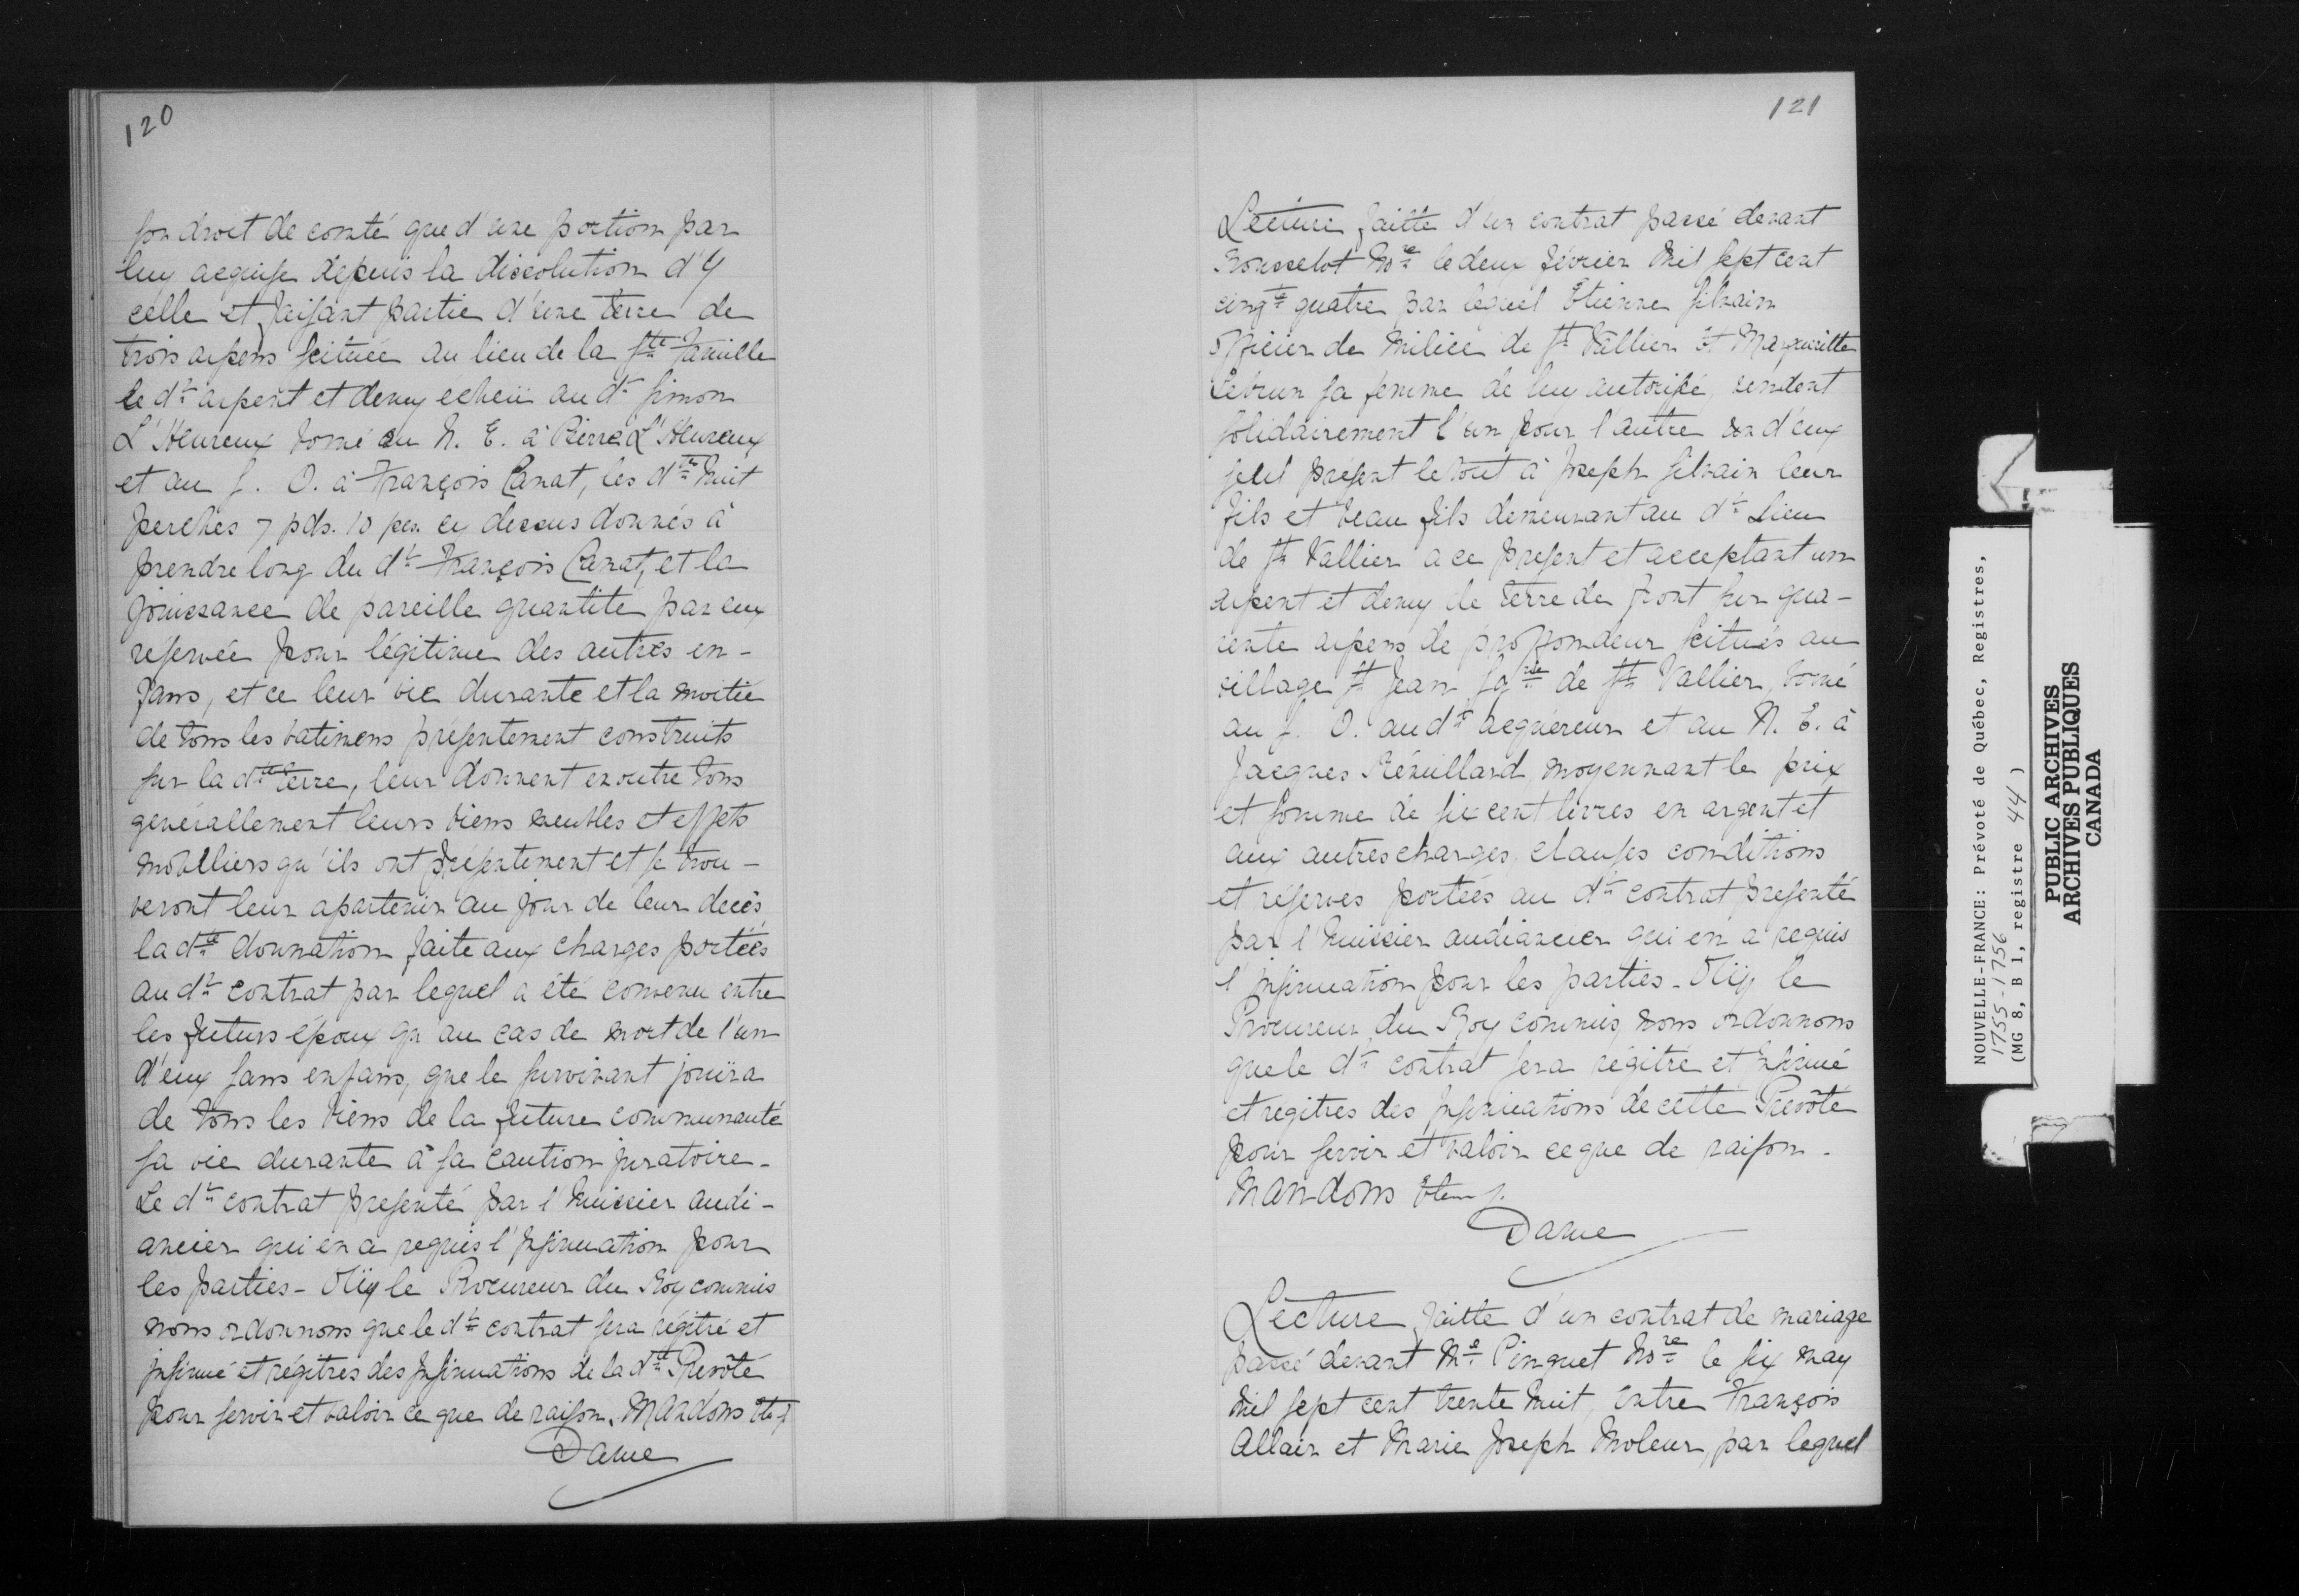 120
son droit de comté que d'une portion par
luy acquise depuis la dissolution d'Y
celle et faisant partie d'une terre de
trois arpens scituée au lieu de la Ste Famille
le dt arpent et demy echeü au dt Simon
L'Heureux borné au N. E. à Pierre L'Heureux
et au S. O. à François Canat, les dtes huit
perches 7 pds. 10 pcs cy dessus donnés à
prendre long du dt François Canat, et la
joüissance de pareille quantité par eux
réservée pour légitime des autres en-
fans, et ce leur vie durante et la moitié
de tous les batimens présentement construits
sur la dte terre, leur donnent en outre tous
generallement leurs biens meubles et effets
mobilliers qu'ils ont présentement et se trou-
veront leur apartenir au jour de leur decès
la dte donnation faite aux charges portées
au dt contrat par lequel a été convenu entre
les futurs époux qu au cas de mort de l'un
d'eux sans enfans, que le survivant jouïra
de tous les biens de la future communauté
sa vie durante à sa caution juratoire.
Le dt contrat presenté par l'huissier audi-
ancier qui en a requis l'Insinuation pour
les parties - Oüy le Procureur du Roy commis
nous ordonnons que le dt contrat sera régitré et
insinué et régitres des Insinuations de la dte Prevôté
pour servir et valoir ce que de raison. Mandons
Dame
121
Lecture faitte d'un contrat passé devant
Rousselot Nore le deux février Mil sept cent
cinqte quatre par lequel Etienne Silvain
officier de milice de St Vallier et Margueritte
Lebrun sa femme de luy autorisé, vendent
solidairement l'un pour l'autre un d'eux
seul présent le tout à Joseph Silvain leur
fils et beau fils demeurant au dt Lieu
de St Vallier a ce present et acceptant un
arpent et demy de terre de front sur qua-
rente arpens de proffondeur scitués au
village St Jean Sgrie de St Vallier, borné
au S. O. au dt acquereur et au N. E. à
Jacques Rémillard, moyennant le prix
et somme de six cent livres en argent et
aux autres charges, clauses conditions
et réserves portées au dt contrat presenté
par l'huissier audiancier qui en a requis
l'insinuation pour les parties. Oüy le
Procureur du Roy commis, nous ordonnons
que le dt contrat sera régitré et Insinué
et regitres des Insinuations de cette Prevôté
pour servir et valoir ce que de raison.
Mandons
Dame
Lecture faitte d'un contrat de mariage
passé devant Me Pinguet Nore le six may
mil sept cent trente huit, entre François
Allair et Marie Joseph Moleur, par lequel
NOUVELLE-FRANCE: Prévôté de Québec, Registres,
1755-1756
(MG 8, B 1, registre 44 )
PUBLIC ARCHIVES
ARCHIVES PUBLIQUES
CANADA